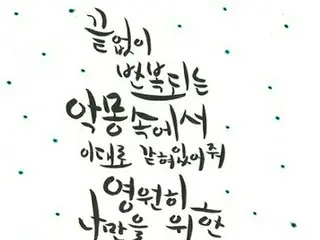 끝없이
반복되는
악몽 속에서
이대로 갇혀있어줘
영원히
나만을 위한